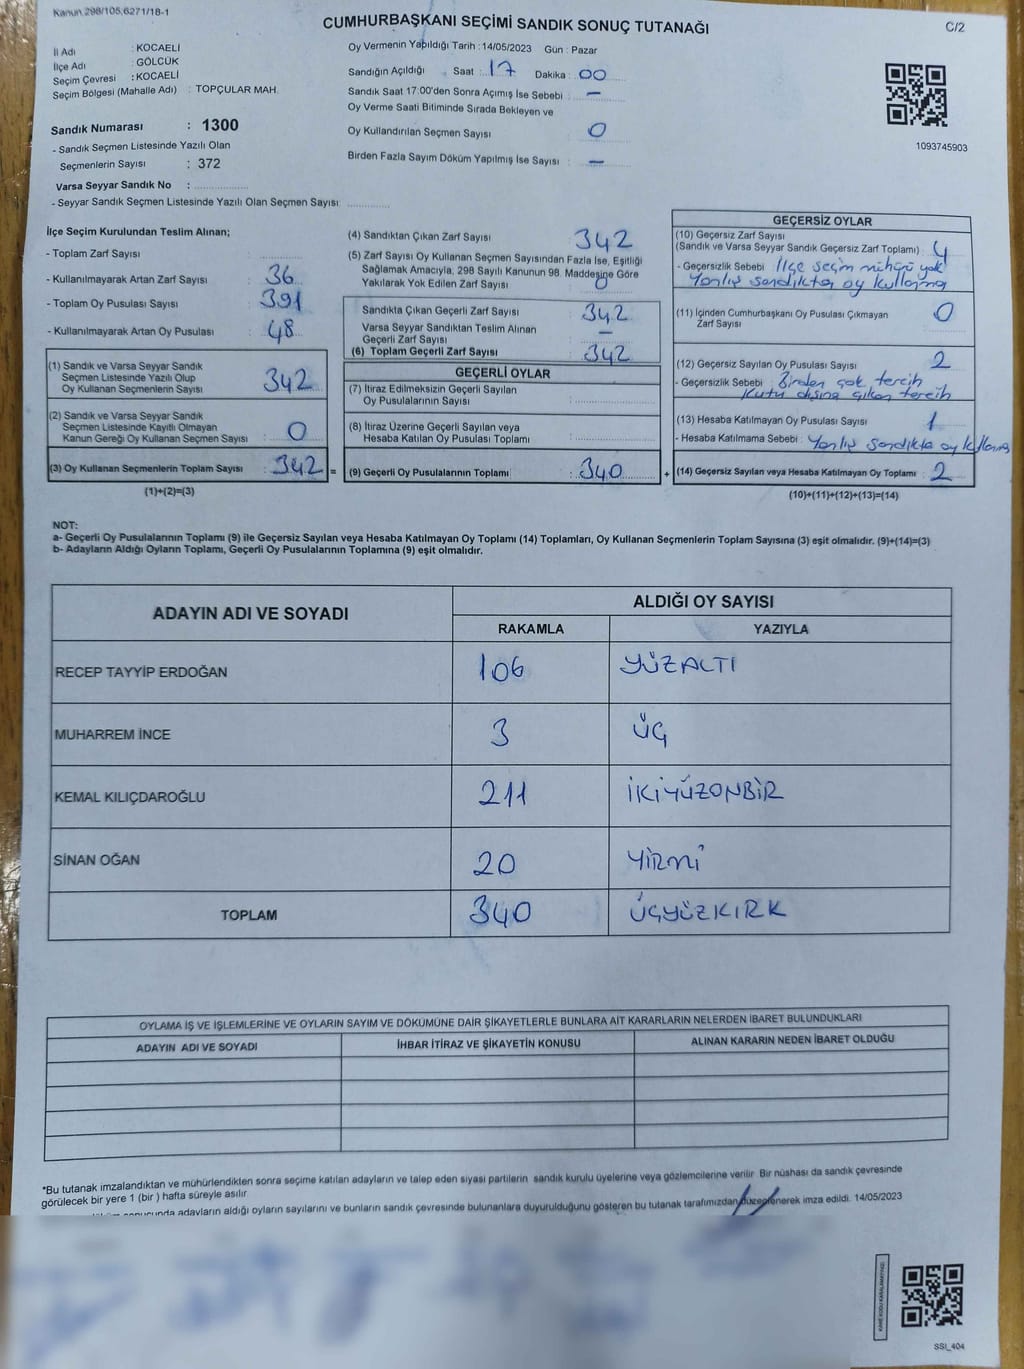 Kanun 298/105,6271/18-1
CUMHURBAŞKANI SEÇİMİ SANDIK SONUÇ TUTANAĞI
C/2
İl Adı : KOCAELİ
İlçe Adı : GÖLCÜK
Seçim Çevresi : KOCAELİ
Seçim Bölgesi (Mahalle Adı) : TOPÇULAR MAH.
Sandık Numarası : 1300
- Sandık Seçmen Listesinde Yazılı Olan
Seçmenlerin Sayısı : 372
Varsa Seyyar Sandık No :
- Seyyar Sandık Seçmen Listesinde Yazılı Olan Seçmen Sayısı
Oy Vermenin Yapıldığı Tarih : 14/05/2023 Gün : Pazar
Sandığın Açıldığı Saat : 17 Dakika : 00
Sandık Saat 17:00'den Sonra Açımış İse Sebebi : —
Oy Verme Saati Bitiminde Sırada Bekleyen ve
Oy Kullandırılan Seçmen Sayısı : 0
Birden Fazla Sayım Döküm Yapılmış İse Sayısı : —
1093745903
İlçe Seçim Kurulundan Teslim Alınan;
- Toplam Zarf Sayısı :
- Kullanılmayarak Artan Zarf Sayısı : 36
- Toplam Oy Pusulası Sayısı : 391
- Kullanılmayarak Artan Oy Pusulası : 48
(1) Sandık ve Varsa Seyyar Sandık
Seçmen Listesinde Yazılı Olup
Oy Kullanan Seçmenlerin Sayısı : 342
(2) Sandık ve Varsa Seyyar Sandık
Seçmen Listesinde Kayıtlı Olmayan
Kanun Gereği Oy Kullanan Seçmen Sayısı : 0
(3) Oy Kullanan Seçmenlerin Toplam Sayısı : 342 =
(1)+(2)=(3)
(4) Sandıktan Çıkan Zarf Sayısı : 342
(5) Zarf Sayısı Oy Kullanan Seçmen Sayısından Fazla İse, Eşitliği
Sağlamak Amacıyla, 298 Sayılı Kanunun 98. Maddesine Göre
Yakılarak Yok Edilen Zarf Sayısı : 0
Sandıkta Çıkan Geçerli Zarf Sayısı : 342
Varsa Seyyar Sandıktan Teslim Alınan
Geçerli Zarf Sayısı : —
(6) Toplam Geçerli Zarf Sayısı : 342
GEÇERLİ OYLAR
(7) İtiraz Edilmeksizin Geçerli Sayılan
Oy Pusulalarının Sayısı :
(8) İtiraz Üzerine Geçerli Sayılan veya
Hesaba Katılan Oy Pusulası Toplamı :
(9) Geçerli Oy Pusulalarının Toplamı : 340 +
GEÇERSİZ OYLAR
(10) Geçersiz Zarf Sayısı
(Sandık ve Varsa Seyyar Sandık Geçersiz Zarf Toplamı) : 4
- Geçersizlik Sebebi : İlçe seçim mührü yok
Yanlış sandıkta oy kullanma
(11) İçinden Cumhurbaşkanı Oy Pusulası Çıkmayan
Zarf Sayısı : 0
(12) Geçersiz Sayılan Oy Pusulası Sayısı : 2
- Geçersizlik Sebebi : Birden çok tercih
Kutu dışına çıkan tercih
(13) Hesaba Katılmayan Oy Pusulası Sayısı : 1
- Hesaba Katılmama Sebebi : Yanlış sandıkta oy kullanma
(14) Geçersiz Sayılan veya Hesaba Katılmayan Oy Toplamı : 2
(10)+(11)+(12)+(13)=(14)
NOT:
a- Geçerli Oy Pusulalarının Toplamı (9) ile Geçersiz Sayılan veya Hesaba Katılmayan Oy Toplamı (14) Toplamları, Oy Kullanan Seçmenlerin Toplam Sayısına (3) eşit olmalıdır. (9)+(14)=(3)
b- Adayların Aldığı Oyların Toplamı, Geçerli Oy Pusulalarının Toplamına (9) eşit olmalıdır.
ADAYIN ADI VE SOYADI
ALDIĞI OY SAYISI
RAKAMLA YAZIYLA
RECEP TAYYİP ERDOĞAN 106 YÜZALTI
MUHARREM İNCE 3 ÜÇ
KEMAL KILIÇDAROĞLU 211 İKİYÜZONBİR
SİNAN OĞAN 20 YİRMİ
TOPLAM 340 ÜÇYÜZKIRK
OYLAMA İŞ VE İŞLEMLERİNE VE OYLARIN SAYIM VE DÖKÜMÜNE DAİR ŞİKAYETLERLE BUNLARA AİT KARARLARIN NELERDEN İBARET BULUNDUKLARI
ADAYIN ADI VE SOYADI İHBAR İTİRAZ VE ŞİKAYETİN KONUSU ALINAN KARARIN NEDEN İBARET OLDUĞU
*Bu tutanak imzalandıktan ve mühürlendikten sonra seçime katılan adayların ve talep eden siyasi partilerin sandık kurulu üyelerine veya gözlemcilerine verilir. Bir nüshası da sandık çevresinde
görülecek bir yere 1 (bir) hafta süreyle asılır.
sonucunda adayların aldığı oyların sayılarını ve bunların sandık çevresinde bulunanlara duyurulduğunu gösteren bu tutanak tarafımızdan düzenlenerek imza edildi. 14/05/2023
SSI_404